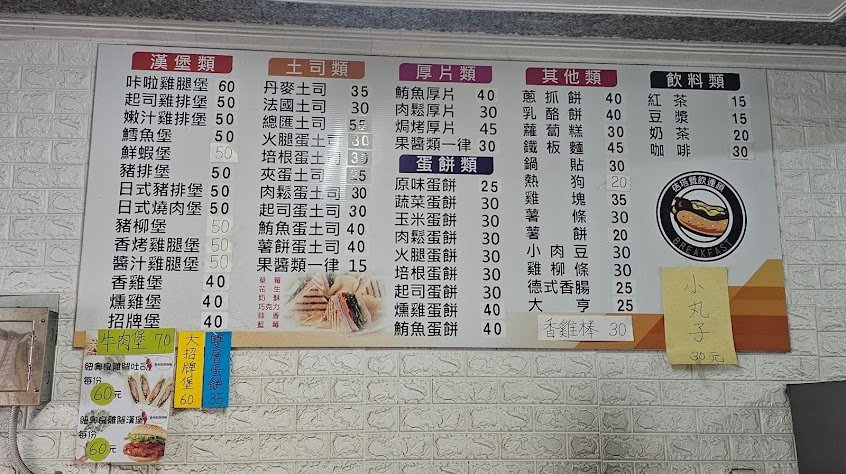 漢堡類
咔啦雞腿堡 60
起司雞排堡 50
嫩汁雞排堡 50
鱈魚堡 50
鮮蝦堡 50
豬排堡 50
日式豬排堡 50
日式燒肉堡 50
豬柳堡 50
香烤雞腿堡 50
醬汁雞腿堡 50
香雞堡 40
燻雞堡 40
招牌堡 40
土司類
丹麥土司 35
法國土司 30
總匯土司 55
火腿蛋土司 30
培根蛋土司 35
夾蛋土司 25
肉鬆蛋土司 30
起司蛋土司 30
鮪魚蛋土司 40
薯餅蛋土司 40
果醬類一律 15
草花奶巧蒜藍
厚片類
鮪魚厚片 40
肉鬆厚片 30
焗烤厚片 45
果醬類一律 30
蛋餅類
原味蛋餅 25
蔬菜蛋餅 30
玉米蛋餅 30
肉鬆蛋餅 30
火腿蛋餅 30
培根蛋餅 30
起司蛋餅 30
燻雞蛋餅 40
鮪魚蛋餅 40
其他類
蔥抓餅 40
乳酪餅 40
蘿蔔糕 30
鐵板麵 45
鍋貼 30
熱狗 20
雞塊 35
薯條 30
薯餅 20
小肉豆 30
雞柳條 30
德式香腸 25
大亨 25
香雞棒 30
飲料類
紅茶 15
豆漿 15
奶茶 20
咖啡 30
BREAKFAST
小丸子
30元
牛肉堡 70
大招牌堡 60
雙層蛋餅 35
紐奧良雞腿吐司
每份
60元
紐奧良雞腿漢堡
每份
60元